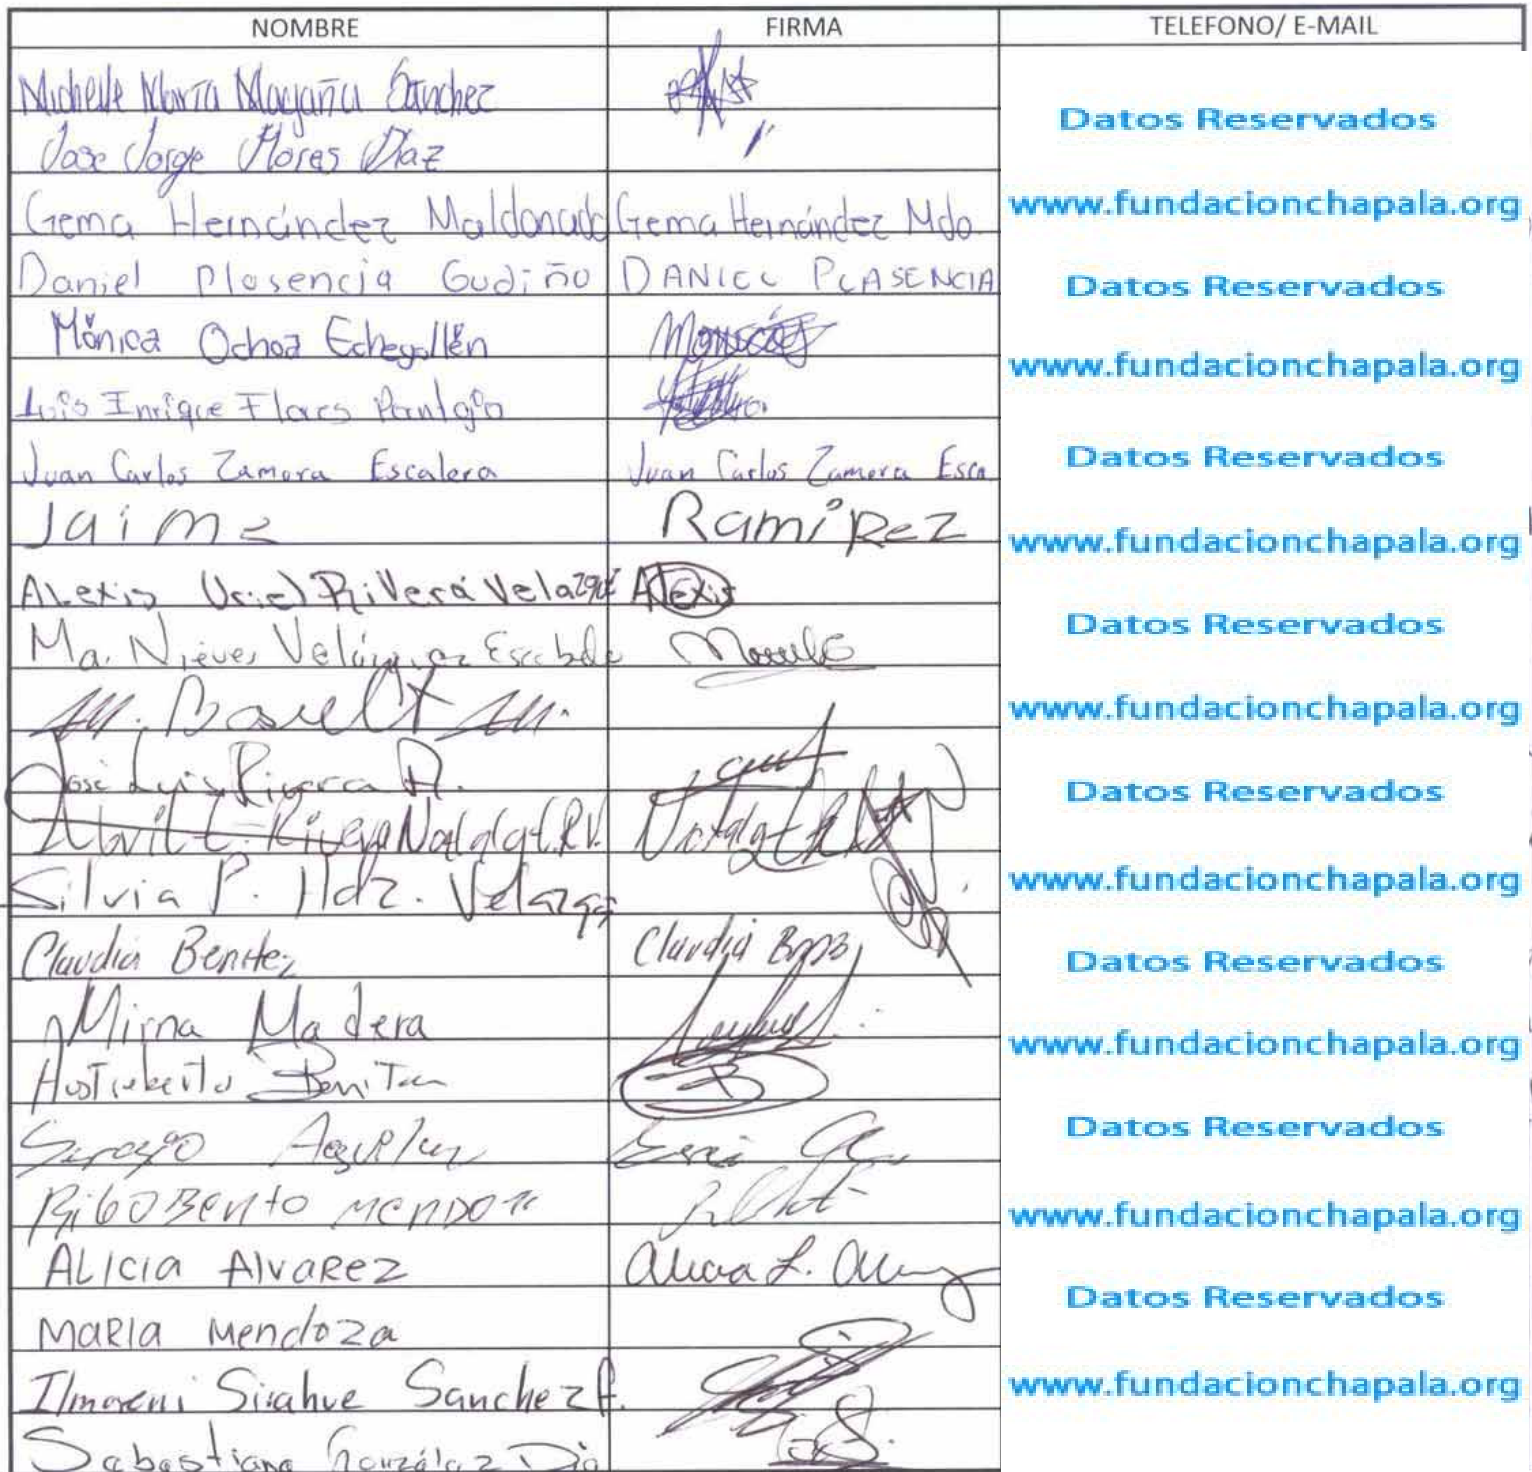 NOMBRE FIRMA TELEFONO/ E-MAIL
Michelle María Magaña Sánchez
Datos Reservados
Jose Jorge Flores Diaz
Gema Hernández Maldonado Gema Hernández Mdo. www.fundacionchapala.org
Daniel Plasencia Gudiño DANIEL PLASENCIA Datos Reservados
Mónica Ochoa Echegollén Monica
www.fundacionchapala.org
Luis Enrique Flores
Juan Carlos Zamora Escalera Juan Carlos Zamora Esca Datos Reservados
Jaime Ramirez www.fundacionchapala.org
Alexis Uriel Rivera Velazque Alexis
Datos Reservados
Ma. Nieves
www.fundacionchapala.org
José Luis Rivera A. Datos Reservados
Abril
Silvia P. Hdz. Velazqz www.fundacionchapala.org
Claudia Benitez Claudia Datos Reservados
Mirna Madera www.fundacionchapala.org
Datos Reservados
Sergio Aguilar
RigoBerto Mendoza www.fundacionchapala.org
ALICIA Alvarez Alicia L.
Datos Reservados
MARIA Mendoza
Sirahue Sanchez P. www.fundacionchapala.org
Sebastiana González Dia